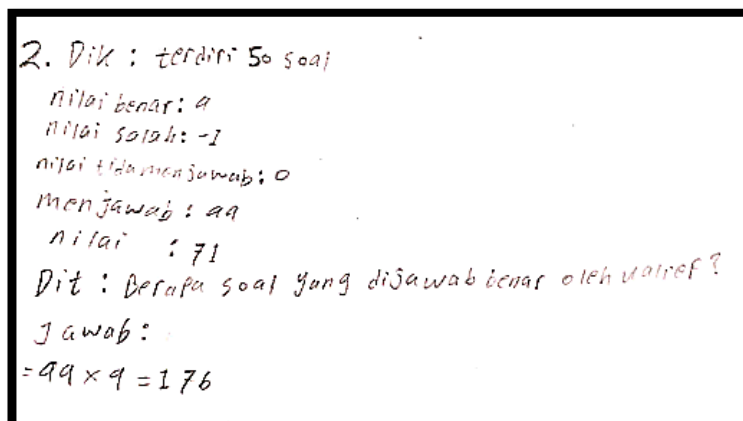 2. Dik : terdiri 50 soal
nilai benar : 4
nilai salah : -1
nilai tida menjawab : 0
menjawab : 44
nilai : 71
Dit : Berapa soal yang dijawab benar oleh valref ?
Jawab :
= 44 x 4 = 176